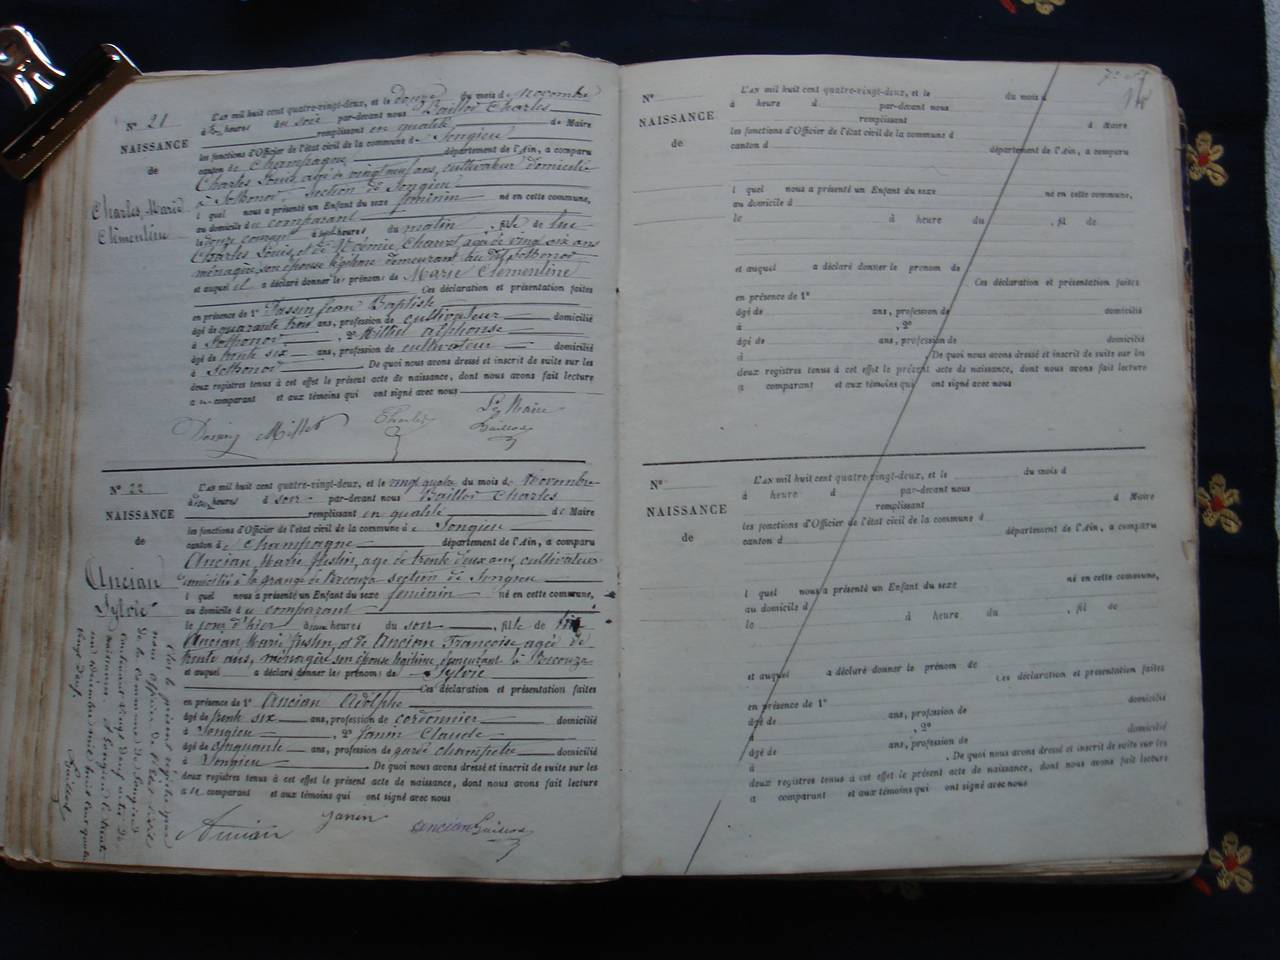 N° 21
NAISSANCE
de
Charles, Marie
Clémentine
L'AN mil huit cent quatre-vingt-deux, et le douze du mois d Novembre
à heures du soir par-devant nous Baillod Charles
remplissant en qualité de Maire
les fonctions d'Officier de l'état civil de la commune de Songieu
canton de Champagne département de l'Ain, a comparu
Charles Louis, agé de vingt neuf ans, cultivateur domicilié
à Sothonod, section de Songieu
l quel nous a présenté un Enfant du sexe féminin né en cette commune,
au domicile du comparant
le douze courant à heures du matin, fille de lui
Charles Louis et de Noémie Charvet, agée de vingt six ans
ménagère, son épouse légitime demeurant au dit Sothonod
et auquel il a déclaré donner les prénoms de Marie Clémentine
Ces déclaration et présentation faites
en présence de 1° Tassin Jean Baptiste
âgé de quarante trois ans, profession de cultivateur domicilié
à Sothonod, 2° Millet alphonse
âgé de trente six ans, profession de cultivateur domicilié
à Sothonod De quoi nous avons dressé et inscrit de suite sur les
deux registres tenus à cet effet le présent acte de naissance, dont nous avons fait lecture
au comparant et aux témoins qui ont signé avec nous
Millet Charles Le Maire
Baillod
N° 22
NAISSANCE
de
Ancian
Sylvie
L'AN mil huit cent quatre-vingt-deux, et le vingt quatre du mois de Novembre
à heures d soir par-devant nous Baillod Charles
remplissant en qualité de Maire
les fonctions d'Officier de l'état civil de la commune de Songieu
canton de Champagne département de l'Ain, a comparu
Ancian Marie Justin, agé de trente deux ans, cultivateur
domicilié à la grange de section de Songieu
l quel nous a présenté un Enfant du sexe féminin né en cette commune,
au domicile du comparant
le jour d'hier à heures du soir, fille de
Ancian Marie Justin, et de Ancian Françoise agée de
trente ans, ménagère son épouse légitime, demeurant à
et auquel a déclaré donner le prénom de Sylvie
Ces déclaration et présentation faites
en présence de 1° Ancian Adolphe
âgé de trente six ans, profession de cordonnier domicilié
à Songieu, 2° Janin Claude
âgé de cinquante ans, profession de garde champêtre domicilié
à Songieu. De quoi nous avons dressé et inscrit de suite sur les
deux registres tenus à cet effet le présent acte de naissance, dont nous avons fait lecture
au comparant et aux témoins qui ont signé avec nous
Ancian Janin ancian Baillod
Clos le présent registre par
nous officier de l'état civil
de la commune de Songieu
contenant vingt deux actes de
naissances. A Songieu le trente
un Décembre mil huit cent quatre
vingt deux.
Baillod
N°
NAISSANCE
de
L'AN mil huit cent quatre-vingt-deux, et le du mois d
à heure d par-devant nous
remplissant d Maire
les fonctions d'Officier de l'état civil de la commune d
canton d département de l'Ain, a comparu
l quel nous a présenté un Enfant du sexe né en cette commune,
au domicile d
le à heure du, fil de
et auquel a déclaré donner le prenom de
Ces déclaration et présentation faites
en présence de 1°
âgé de ans, profession de domicilié
à, 2°
âgé de ans, profession de domicilié
à. De quoi nous avons dressé et inscrit de suite sur les
deux registres tenus à cet effet le présent acte de naissance, dont nous avons fait lecture
a comparant et aux témoins qui ont signé avec nous
N°
NAISSANCE
de
L'AN mil huit cent quatre-vingt-deux, et le du mois d
à heure d par-devant nous
remplissant d Maire
les fonctions d'Officier de l'état civil de la commune d
canton d département de l'Ain, a comparu
l quel nous a présenté un Enfant du sexe né en cette commune,
au domicile d
le à heure du, fil de
et auquel a déclaré donner le prénom de
Ces déclaration et présentation faites
en présence de 1°
âgé de ans, profession de domicilié
à, 2°
âgé de ans, profession de domicilié
à. De quoi nous avons dressé et inscrit de suite sur les
deux registres tenus à cet effet le présent acte de naissance, dont nous avons fait lecture
a comparant et aux témoins qui ont signé avec nous